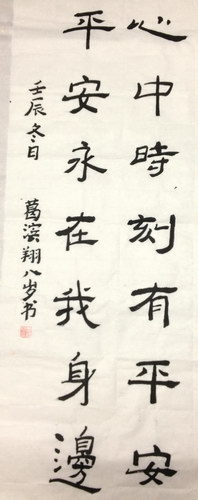 心中時刻有平安
平安永在我身邊
壬辰冬日
葛滨翔八岁书